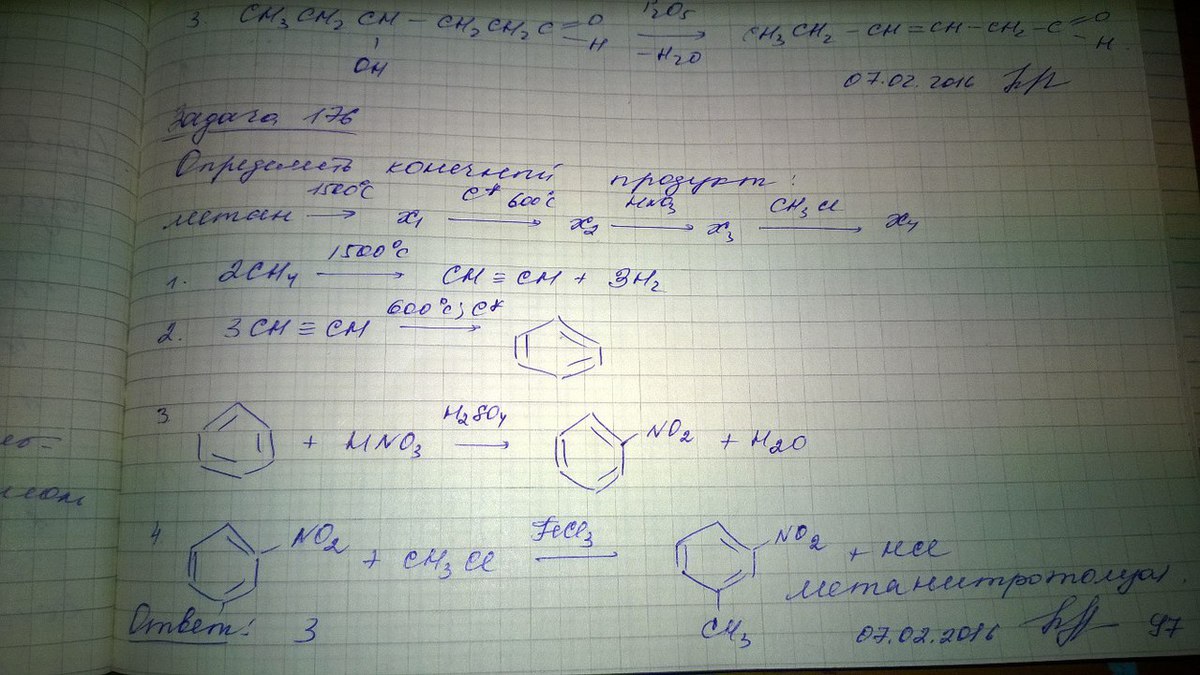 3. CH₃CH₂CH – CH₂CH₂C =O –H P₂O₅ → –H₂O CH₃CH₂ – CH = CH – CH₂ – C =O –H
OH
07.02.2016
Задача 176
Определить конечный продукт:
метан 1500°C → x₁ C* 600°C → x₂ HNO₃ → x₃ CH₃Cl → x₄
1. 2CH₄ 1500°C → CH ≡ CH + 3H₂
2. 3CH ≡ CH 600°C; C* →
3 + HNO₃ H₂SO₄ → NO₂ + H₂O
4 NO₂ + CH₃Cl FeCl₃ → NO₂ + HCl
метанитротолуол.
CH₃
Ответ: 3
07.02.2016 97